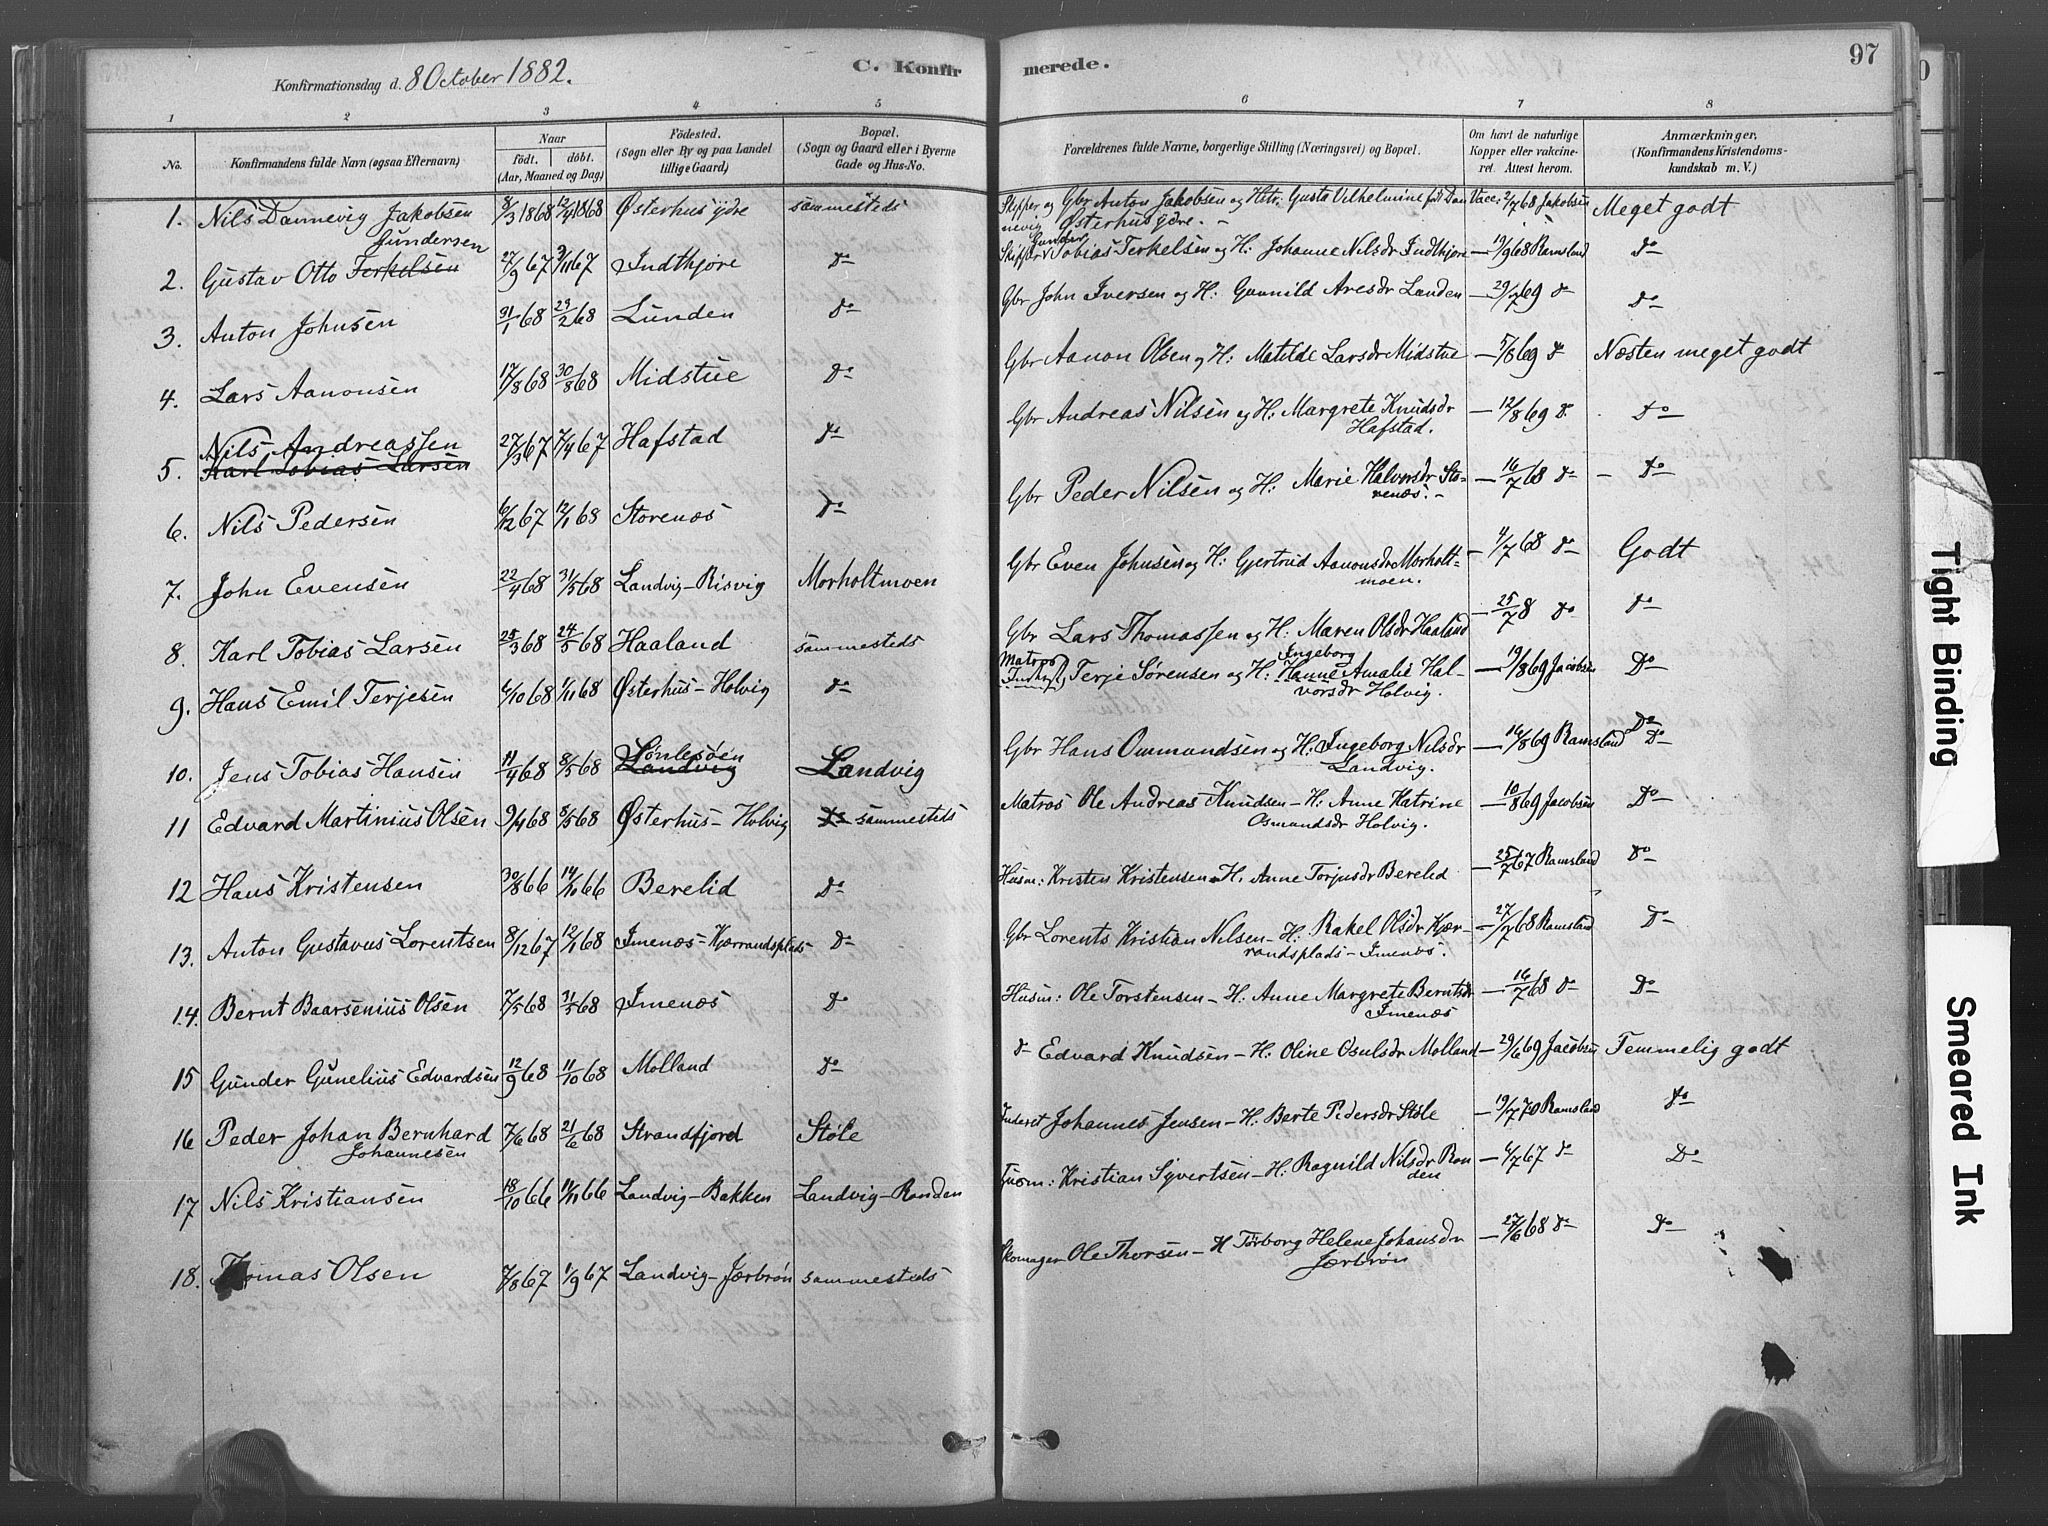 Konfirmationsdag d. 8 October 1882.
C. Konfirmerede.
97
1 2 3 4 5 6 7 8
No. | Konfirmandens fulde Navn (ogsaa Efternavn) | Naar født. døbt. (Aar, Maaned og Dag) | Fødested. (Sogn eller By og paa Landet tillige Gaard) | Bopæl. (Sogn og Gaard eller i Byerne Gade og Hus-No. | Forældrenes fulde Navne, borgerlige Stilling (Næringsvei) og Bopæl. | Om havt de naturlige Kopper eller vakcineret. Attest herom. | Anmærkninger. (Konfirmandens Kristendomskundskab m. V.)
1. Nils Dannevig Jakobsen | 8/3 1868 | 12/4 1868 | Østerhus ydre | sammesteds | Skipper og Gbr Anton Jakobsen og Htr. Gusta Vilhelmine født Dannevig Østerhus ydre. | Vacc. 2/7 68 Jakobsen | Meget godt
2. Gustav Otto Terkelsen Gundersen | 27/9 67 | 3/11 67 | Indthjøre | Do | Skipper Gunder Tobias Terkelsen og H: Johanne Nilsdr Indthjøre | 19/9 68 Ramsland | Do
3. Anton Johnsen | 31/1 68 | 23/2 68 | Lunden | Do | Gbr John Iversen og H: Gunnild Aresdr Lunden | 29/7 69 Do | Do
4. Lars Aanonsen | 17/8 68 | 30/8 68 | Midstue | Do | Gbr Aanon Olsen og H: Matilde Larsdr Midstue | 5/8 69 Do | Næsten meget godt
5. Nils Andreassen Karl Tobias Larsen | 27/3 67 | 7/4 67 | Hafstad | Do | Gbr Andreas Nilsen og H: Margrete Knudsdr Hafstad. | 12/8 69 Do | Do
6. Nils Pedersen | 6/12 67 | 12/1 68 | Storenæs | Do | Gbr Peder Nilsen og H: Marie Halvorsdr Storenæs. | 16/7 68 Do | Do
7. John Evensen | 22/4 68 | 31/5 68 | Landvig-Risvig | Morholtmoen | Gbr Even Johnsen og H: Gjertrud Aanonsdr Morholtmoen. | 4/7 68 Do | Godt
8. Karl Tobias Larsen | 25/3 68 | 24/5 68 | Haaland | sammesteds | Gbr Lars Thomassen og H: Maren Olsdr Haaland | 25/7 8 Do | Do
9. Hans Emil Terjesen | 6/10 68 | 1/11 68 | Østerhus-Holvig | Do | Matros Terje Sørensen og H: Ingeborg Hanne Amalie Halvorsdr Holvig. | 19/8 69 Jacobsen | Do
10. Jens Tobias Hansen | 11/4 68 | 8/5 68 | Landvig | Landvig | Gbr Hans Ommundsen og H: Ingeborg Nilsdr Landvig. | 16/8 69 Ramsland | Do Do
11 Edvard Martinius Olsen | 9/4 68 | 8/5 68 | Østerhus-Holvig | Do sammesteds | Matros Ole Andreas Knudsen - H: Anne Katrine Osmundsdr Holvig. | 10/8 69 Jacobsen | Do
12 Hans Kristensen | 30/8 66 | 14/10 66 | Berelid | Do | Husm: Kristen Kristensen - H. Anne Torjusdr Berelid | 25/7 67 Ramsland | Do
13. Anton Gustavus Lorentsen | 8/12 67 | 12/1 68 | Imenæs-Kjærrandsplads | Do | Gbr Lorents Kristian Nilsen - H: Rakel Olsdr Kjærrandsplads - Imenæs. | 27/7 68 Ramsland | Do
14. Bernt Baarsenius Olsen | 7/5 68 | 31/5 68 | Imenæs | Do | Husm: Ole Torstensen - H: Anne Margrete Berntsdr Imenæs | 16/7 68 Do | Do
15 Gunder Gunelius Edvardsen | 12/9 68 | 11/10 68 | Molland | Do | Do Edvard Knudsen - H: Oline Osulsdr Molland | 29/6 69 Jacobsen | Temmelig godt
16 Peder Johan Bernhard Johannesen | 7/6 68 | 21/6 68 | Strandfjord | Støle | Inderst Johannes Jensen - H: Berte Pedersdr Støle | 19/7 70 Ramsland | Do
17 Nils Kristiansen | 18/10 66 | 11/11 66 | Landvig-Bakken | Landvig-Ronden | Husm: Kristian Syvertsen - H: Ragnild Nilsdr Ronden | 4/7 67 Do | Do
18. Thomas Olsen | 7/8 67 | 1/9 67 | Landvig-Jærbrøn | sammesteds | Skomager Ole Thorsen - H Torborg Helene Johansdr Jærbrøn | 27/6 68 Do | Do
Tight Binding
Smeared Ink